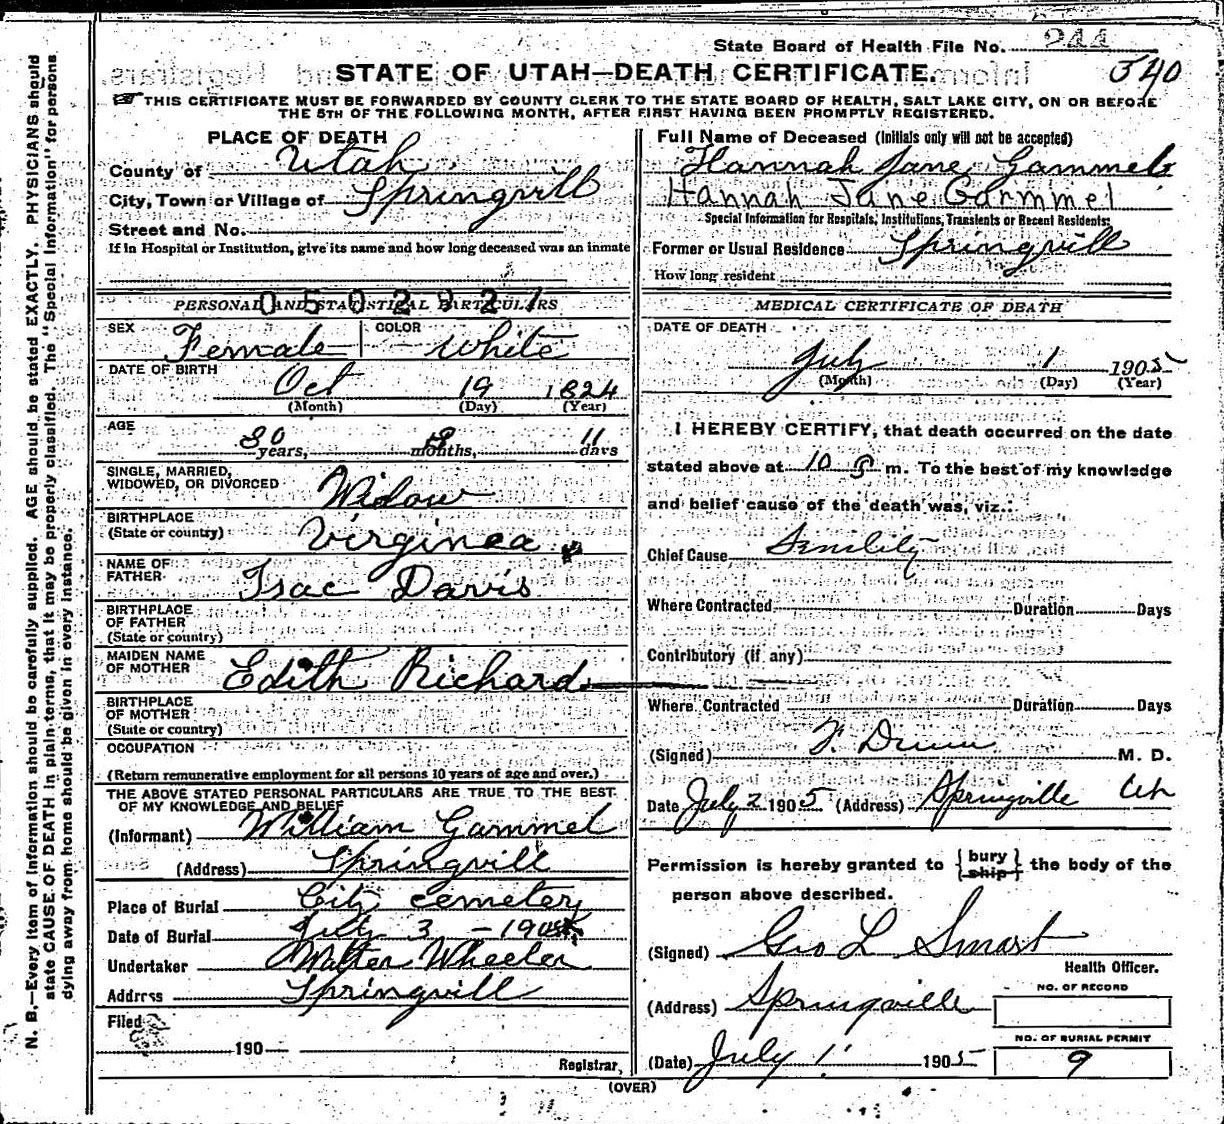 State Board of Health File No. 244
STATE OF UTAH—DEATH CERTIFICATE. 540
THIS CERTIFICATE MUST BE FORWARDED BY COUNTY CLERK TO THE STATE BOARD OF HEALTH, SALT LAKE CITY, ON OR BEFORE
THE 5TH OF THE FOLLOWING MONTH, AFTER FIRST HAVING BEEN PROMPTLY REGISTERED.
N. B.—Every item of information should be carefully supplied. AGE should be stated EXACTLY. PHYSICIANS should
state CAUSE OF DEATH in plain terms, that it may be properly classified. The "Special Information" for persons
dying away from home should be given in every instance.
PLACE OF DEATH
County of Utah
City, Town or Village of Springvill
Street and No.
If in Hospital or Institution, give its name and how long deceased was an inmate
0502921
PERSONAL AND STATISTICAL PARTICULARS
SEX Female COLOR White
DATE OF BIRTH
Oct 19 1824
(Month) (Day) (Year)
AGE
80 years, 8 months, 11 days
SINGLE, MARRIED,
WIDOWED, OR DIVORCED Widow
BIRTHPLACE
(State or country) Virginea
NAME OF
FATHER Isac Davis
BIRTHPLACE
OF FATHER
(State or country)
MAIDEN NAME
OF MOTHER Edith Richards
BIRTHPLACE
OF MOTHER
(State or country)
OCCUPATION
(Return remunerative employment for all persons 10 years of age and over.)
THE ABOVE STATED PERSONAL PARTICULARS ARE TRUE TO THE BEST
OF MY KNOWLEDGE AND BELIEF
(Informant) William Gammel
(Address) Springvill
Place of Burial City cemetery
Date of Burial July 3 - 1905
Undertaker Walter Wheeler
Address Springvill
Filed
190
Registrar,
Full Name of Deceased (Initials only will not be accepted)
Hannah Jane Gammel
Hannah Jane Gammel
Special Information for Hospitals, Institutions, Transients or Recent Residents:
Former or Usual Residence Springvill
How long resident
MEDICAL CERTIFICATE OF DEATH
DATE OF DEATH
July 1 1905
(Month) (Day) (Year)
I HEREBY CERTIFY, that death occurred on the date
stated above at 10 m. To the best of my knowledge
and belief cause of the death was, viz.:
Chief Cause Senility
Where Contracted Duration Days
Contributory (if any)
Where Contracted Duration Days
(Signed) F. Dunn M. D.
Date July 2 1905 (Address) Springville Utah
Permission is hereby granted to {bury
ship} the body of the
person above described.
(Signed) Geo L Smart
Health Officer.
NO. OF RECORD
(Address) Springville
NO. OF BURIAL PERMIT
(Date) July 1 1905 9
(OVER)